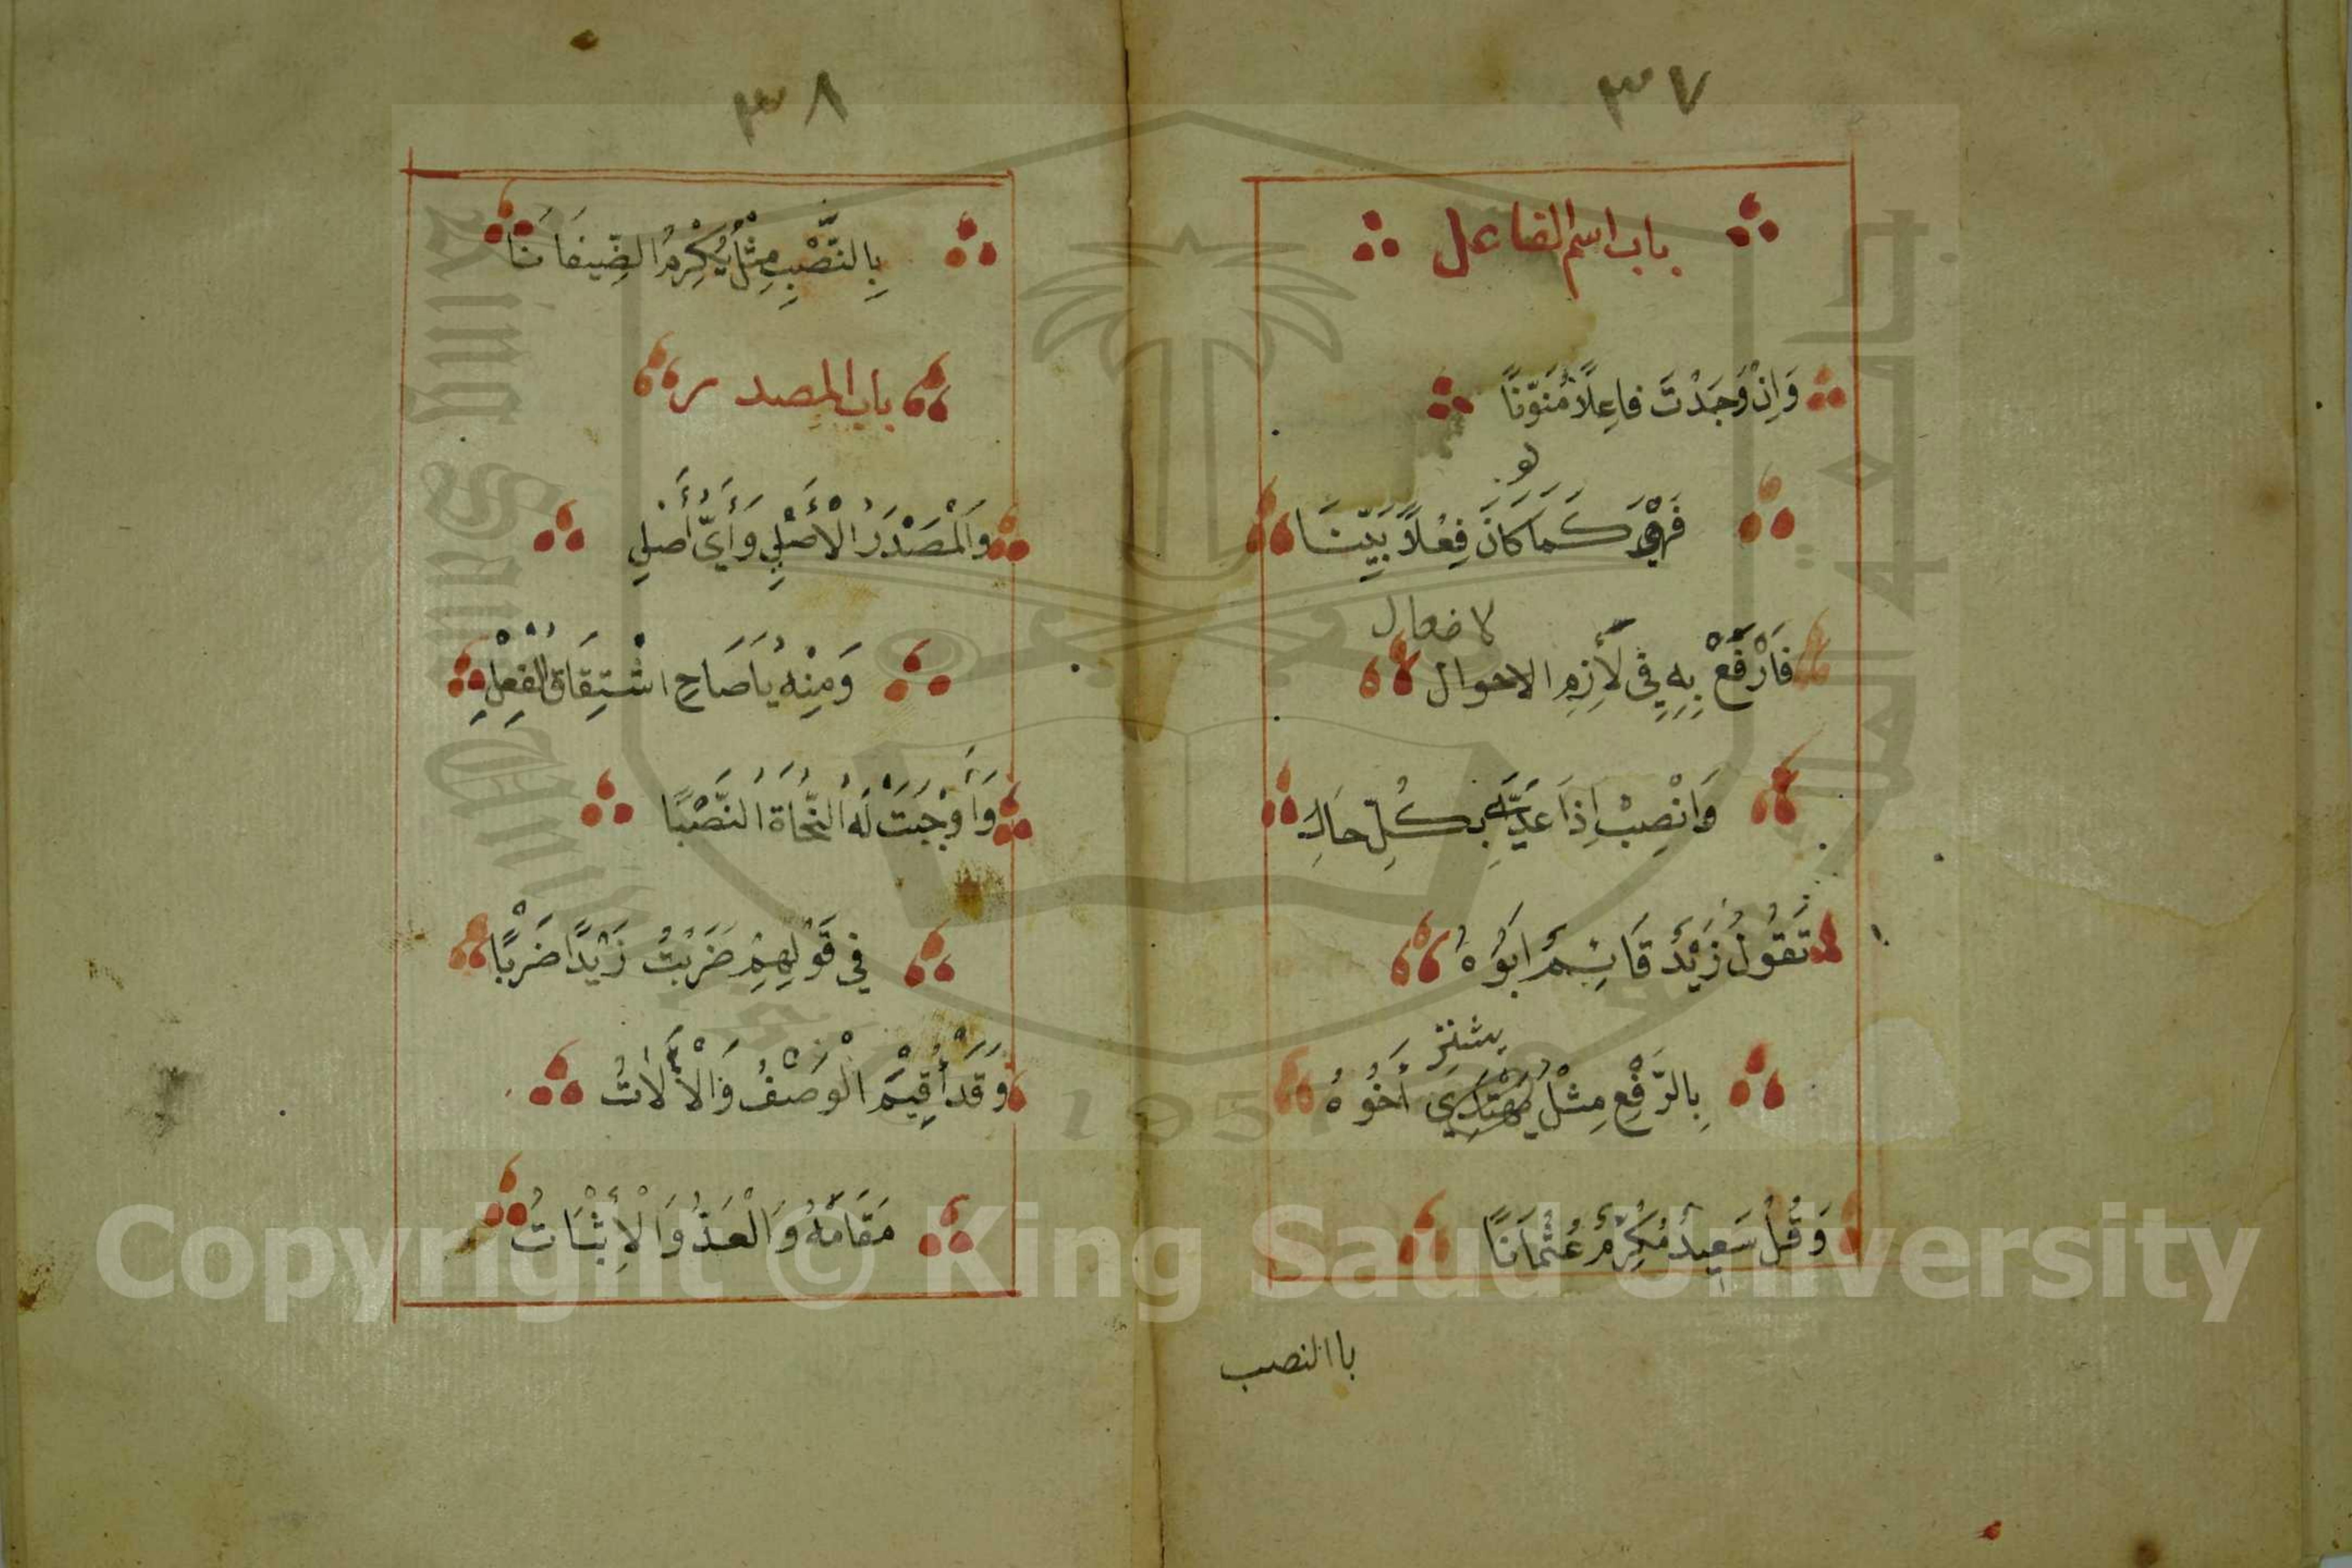 ٣٧
باب اسم الفاعل
وَاِنْ وَجَدْتَ فاعِلًا مُنَوَّنًا
لو
فَهْوَ كَمَا كَانَ فِعْلًا بَيِّنَا
لا فعال
فَارْفَعْ بِهِ فِي لَازِمِ الاحوال
وَانْصِبْ اِذَا عدَّيْتَه بِكُلِّ حَالِ
تَقُولُ زَيْدٌ قَائِمٌ ابُوهُ
يشتر
بِالرَّفْعِ مِثْلُ يَهْتَدِي اَخُوهُ
وَقُلْ سَعِيدٌ مُكْرِمٌ عُثْمَانًا
باالنصب
٣٨
بِالنَّصْبِ مِثْلُ يُكْرِمُ الضِّيفَانَا
باب المصدر
وَالْمَصْدَرُ الْأَصْلِ وَأَيُّ أَصْلِ
وَمِنْهُ يَا صَاحِ اشْتِقَاقُ الْفِعْلِ
وَأَوْجَبَتْ لَهُ النُّحَاةُ النَّصْبَا
فِي قَوْلِهِمْ ضَرَبْتُ زَيْدًا ضَرْبًا
وَقَدْ أُقِيمَ الْوَصْفُ وَالْآلَاتُ
مَقَامَهُ وَالْعَدُّ وَالْأِثْبَاتُ
1957
Copyright © King Saud University